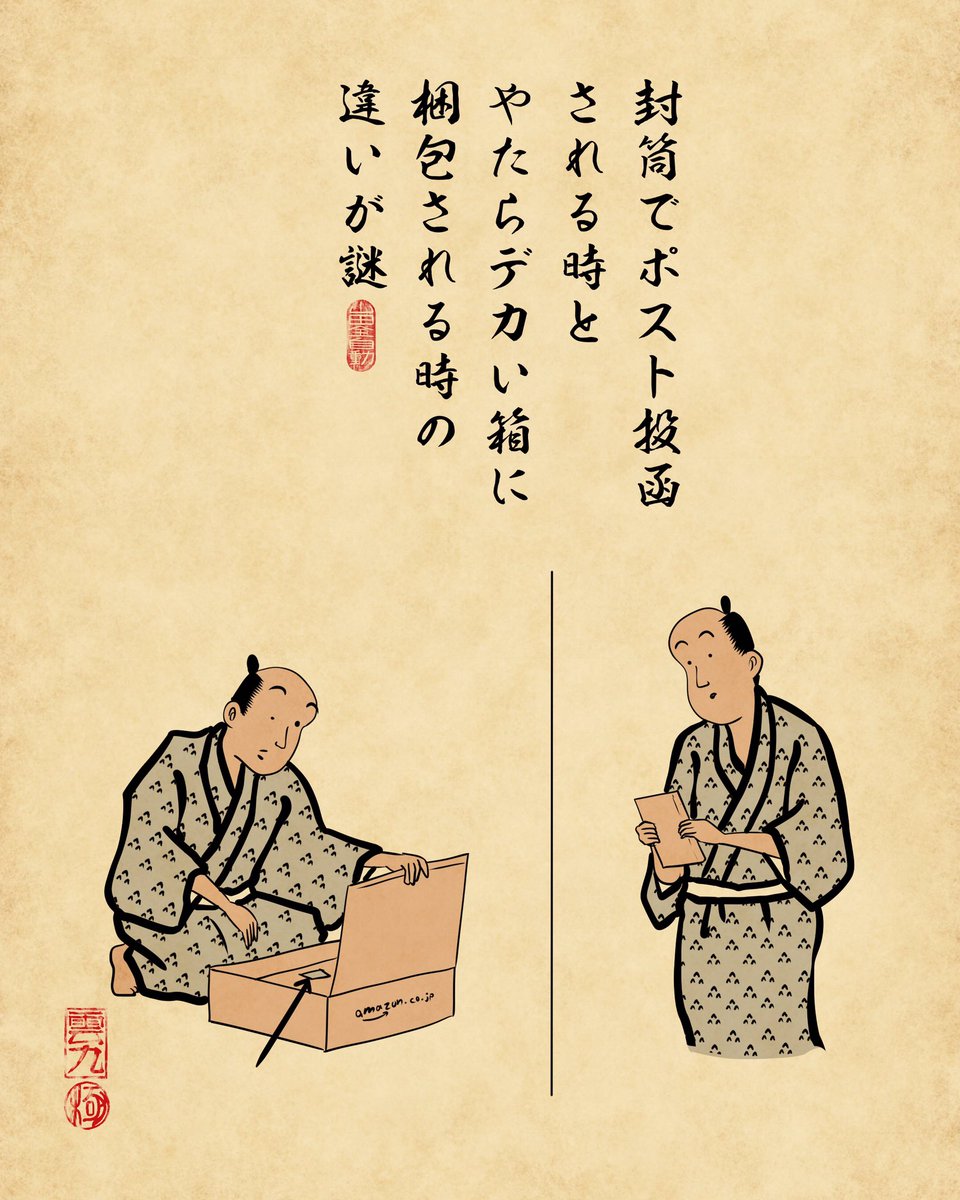 封筒でポスト投函
される時と
やたらデカい箱に
梱包される時の
違いが謎
amazun.co.jp